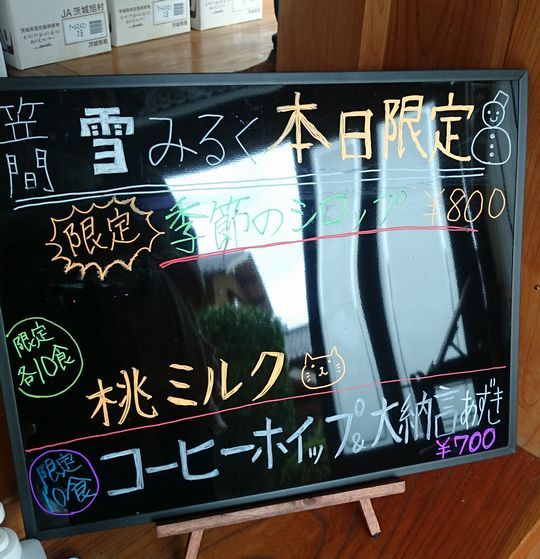 JA茨城旭村
笠間 雪みるく 本日限定
限定 季節のシロップ ¥800
限定
各10食
桃ミルク
限定
10食
コーヒーホイップ&大納言あずき
¥700